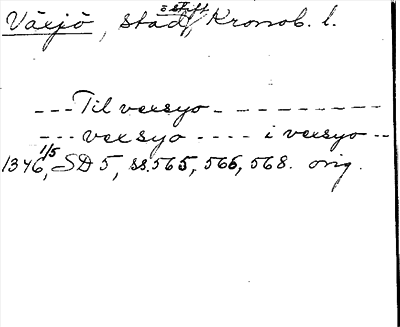 Växjö, stad o. stift, Kronob. l.
---Til vexsyo---------
---vexsyo----i vexsyo--
1346 1/5, SD 5, ss. 565, 566, 568. orig.